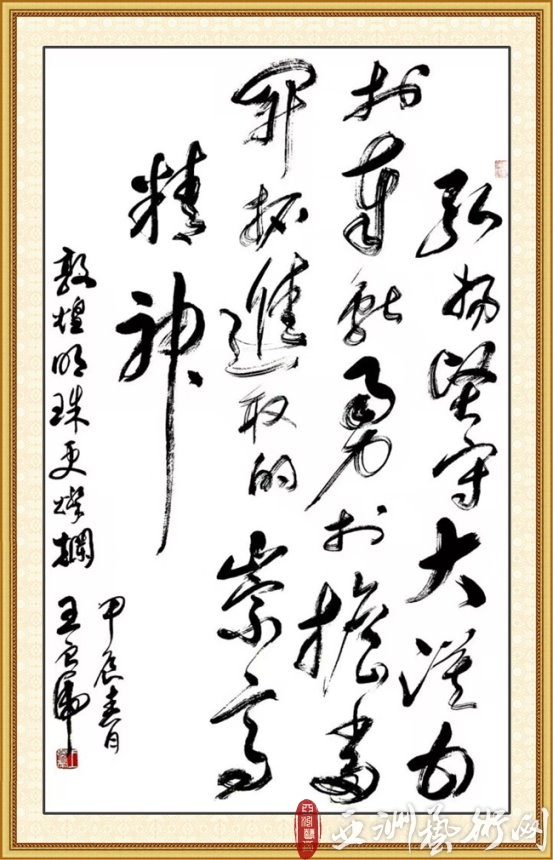 弘扬坚守大漠甘
于奉献勇于担当
开拓进取的崇高
精神
敦煌明珠更灿斓
甲辰春月
王
亚洲藝術网